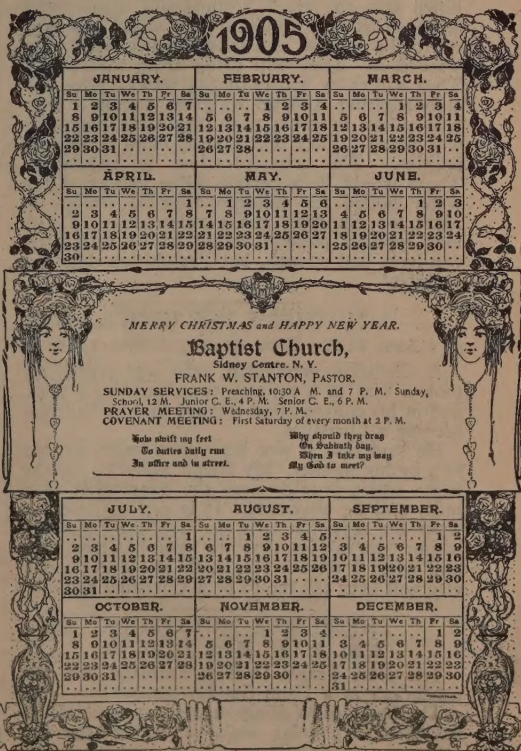 1905
JANUARY.
Su Mo Tu We Th Fr Sa
1 2 3 4 5 6 7
8 9 10 11 12 13 14
15 16 17 18 19 20 21
22 23 24 25 26 27 28
29 30 31
FEBRUARY.
Su Mo Tu We Th Fr Sa
1 2 3 4
5 6 7 8 9 10 11
12 13 14 15 16 17 18
19 20 21 22 23 24 25
26 27 28
MARCH.
Su Mo Tu We Th Fr Sa
1 2 3 4
5 6 7 8 9 10 11
12 13 14 15 16 17 18
19 20 21 22 23 24 25
26 27 28 29 30 31
APRIL.
Su Mo Tu We Th Fr Sa
1
2 3 4 5 6 7 8
9 10 11 12 13 14 15
16 17 18 19 20 21 22
23 24 25 26 27 28 29
30
MAY.
Su Mo Tu We Th Fr Sa
1 2 3 4 5 6
7 8 9 10 11 12 13
14 15 16 17 18 19 20
21 22 23 24 25 26 27
28 29 30 31
JUNE.
Su Mo Tu We Th Fr Sa
1 2 3
4 5 6 7 8 9 10
11 12 13 14 15 16 17
18 19 20 21 22 23 24
25 26 27 28 29 30
MERRY CHRISTMAS and HAPPY NEW YEAR.
Baptist Church,
Sidney Centre, N. Y.
FRANK W. STANTON, PASTOR.
SUNDAY SERVICES: Preaching, 10:30 A M. and 7 P. M. Sunday,
School, 12 M. Junior C. E., 4 P. M. Senior C. E., 6 P. M.
PRAYER MEETING: Wednesday, 7 P. M.
COVENANT MEETING: First Saturday of every month at 2 P. M.
How swift my feet
To duties daily run
In office and in street.
Why should they drag
On Sabbath day,
When I take my way
My God to meet?
JULY.
Su Mo Tu We Th Fr Sa
1
2 3 4 5 6 7 8
9 10 11 12 13 14 15
16 17 18 19 20 21 22
23 24 25 26 27 28 29
30 31
AUGUST.
Su Mo Tu We Th Fr Sa
1 2 3 4 5
6 7 8 9 10 11 12
13 14 15 16 17 18 19
20 21 22 23 24 25 26
27 28 29 30 31
SEPTEMBER.
Su Mo Tu We Th Fr Sa
1 2
3 4 5 6 7 8 9
10 11 12 13 14 15 16
17 18 19 20 21 22 23
24 25 26 27 28 29 30
OCTOBER.
Su Mo Tu We Th Fr Sa
1 2 3 4 5 6 7
8 9 10 11 12 13 14
15 16 17 18 19 20 21
22 23 24 25 26 27 28
29 30 31
NOVEMBER.
Su Mo Tu We Th Fr Sa
1 2 3 4
5 6 7 8 9 10 11
12 13 14 15 16 17 18
19 20 21 22 23 24 25
26 27 28 29 30
DECEMBER.
Su Mo Tu We Th Fr Sa
1 2
3 4 5 6 7 8 9
10 11 12 13 14 15 16
17 18 19 20 21 22 23
24 25 26 27 28 29 30
31